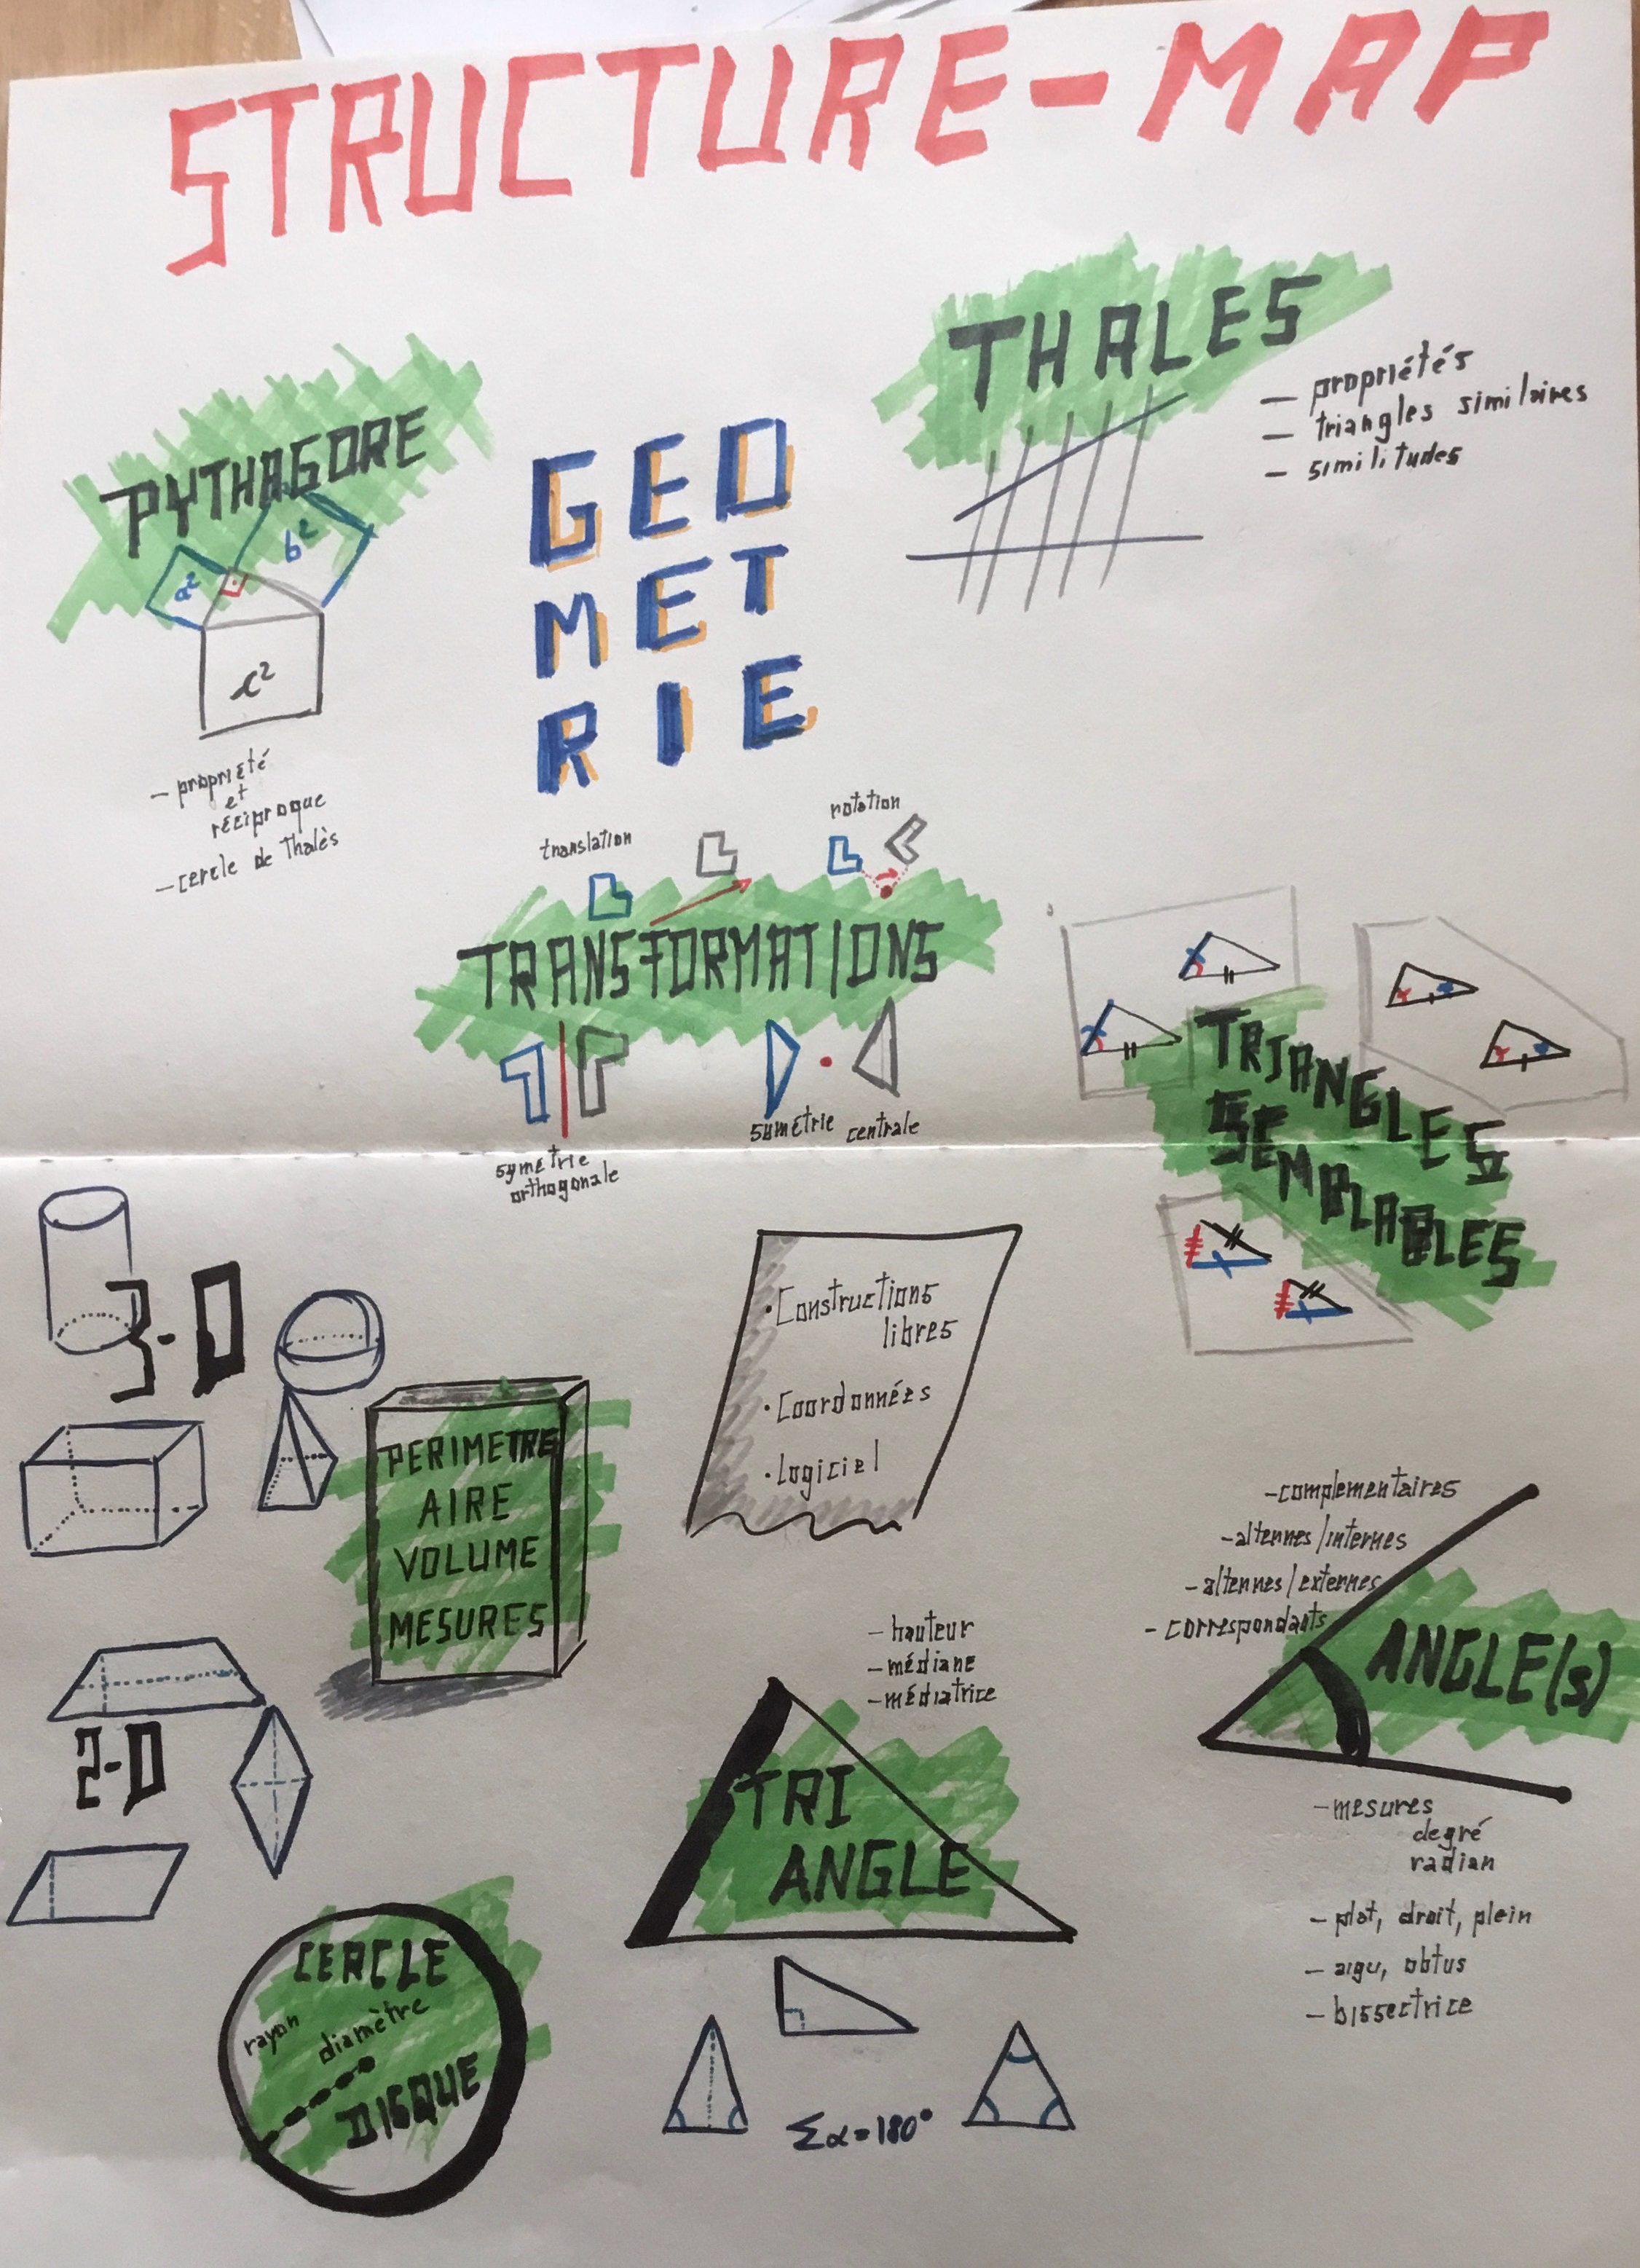 STRUCTURE-MAP
THALES
- propriétés
- triangles similaires
- similitudes
PYTHAGORE
a²
b²
c²
- propriété
et
réciproque
- cercle de Thalès
GEO
MET
RIE
translation
rotation
TRANSFORMATIONS
symétrie
orthogonale
symétrie centrale
TRIANGLES
SEMBLABLES
3-D
PERIMETRE
AIRE
VOLUME
MESURES
• Constructions
libres
• Coordonnées
• Logiciel
2-D
- complementaires
- alternes/internes
- alternes/externes
- correspondants
ANGLE(s)
- mesures
degré
radian
- plat, droit, plein
- aigu, obtus
- bissectrice
- hauteur
- médiane
- médiatrice
TRI
ANGLE
Σα=180°
CERCLE
rayon
diamètre
DISQUE